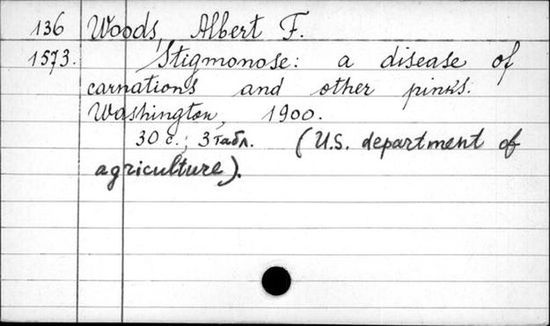 136 Woods, Albert F.
1573. Stigmonose: a disease of
carnations and other pinks.
Washington, 1900.
30 с.; 3 табл. (U.S. department of
agriculture).